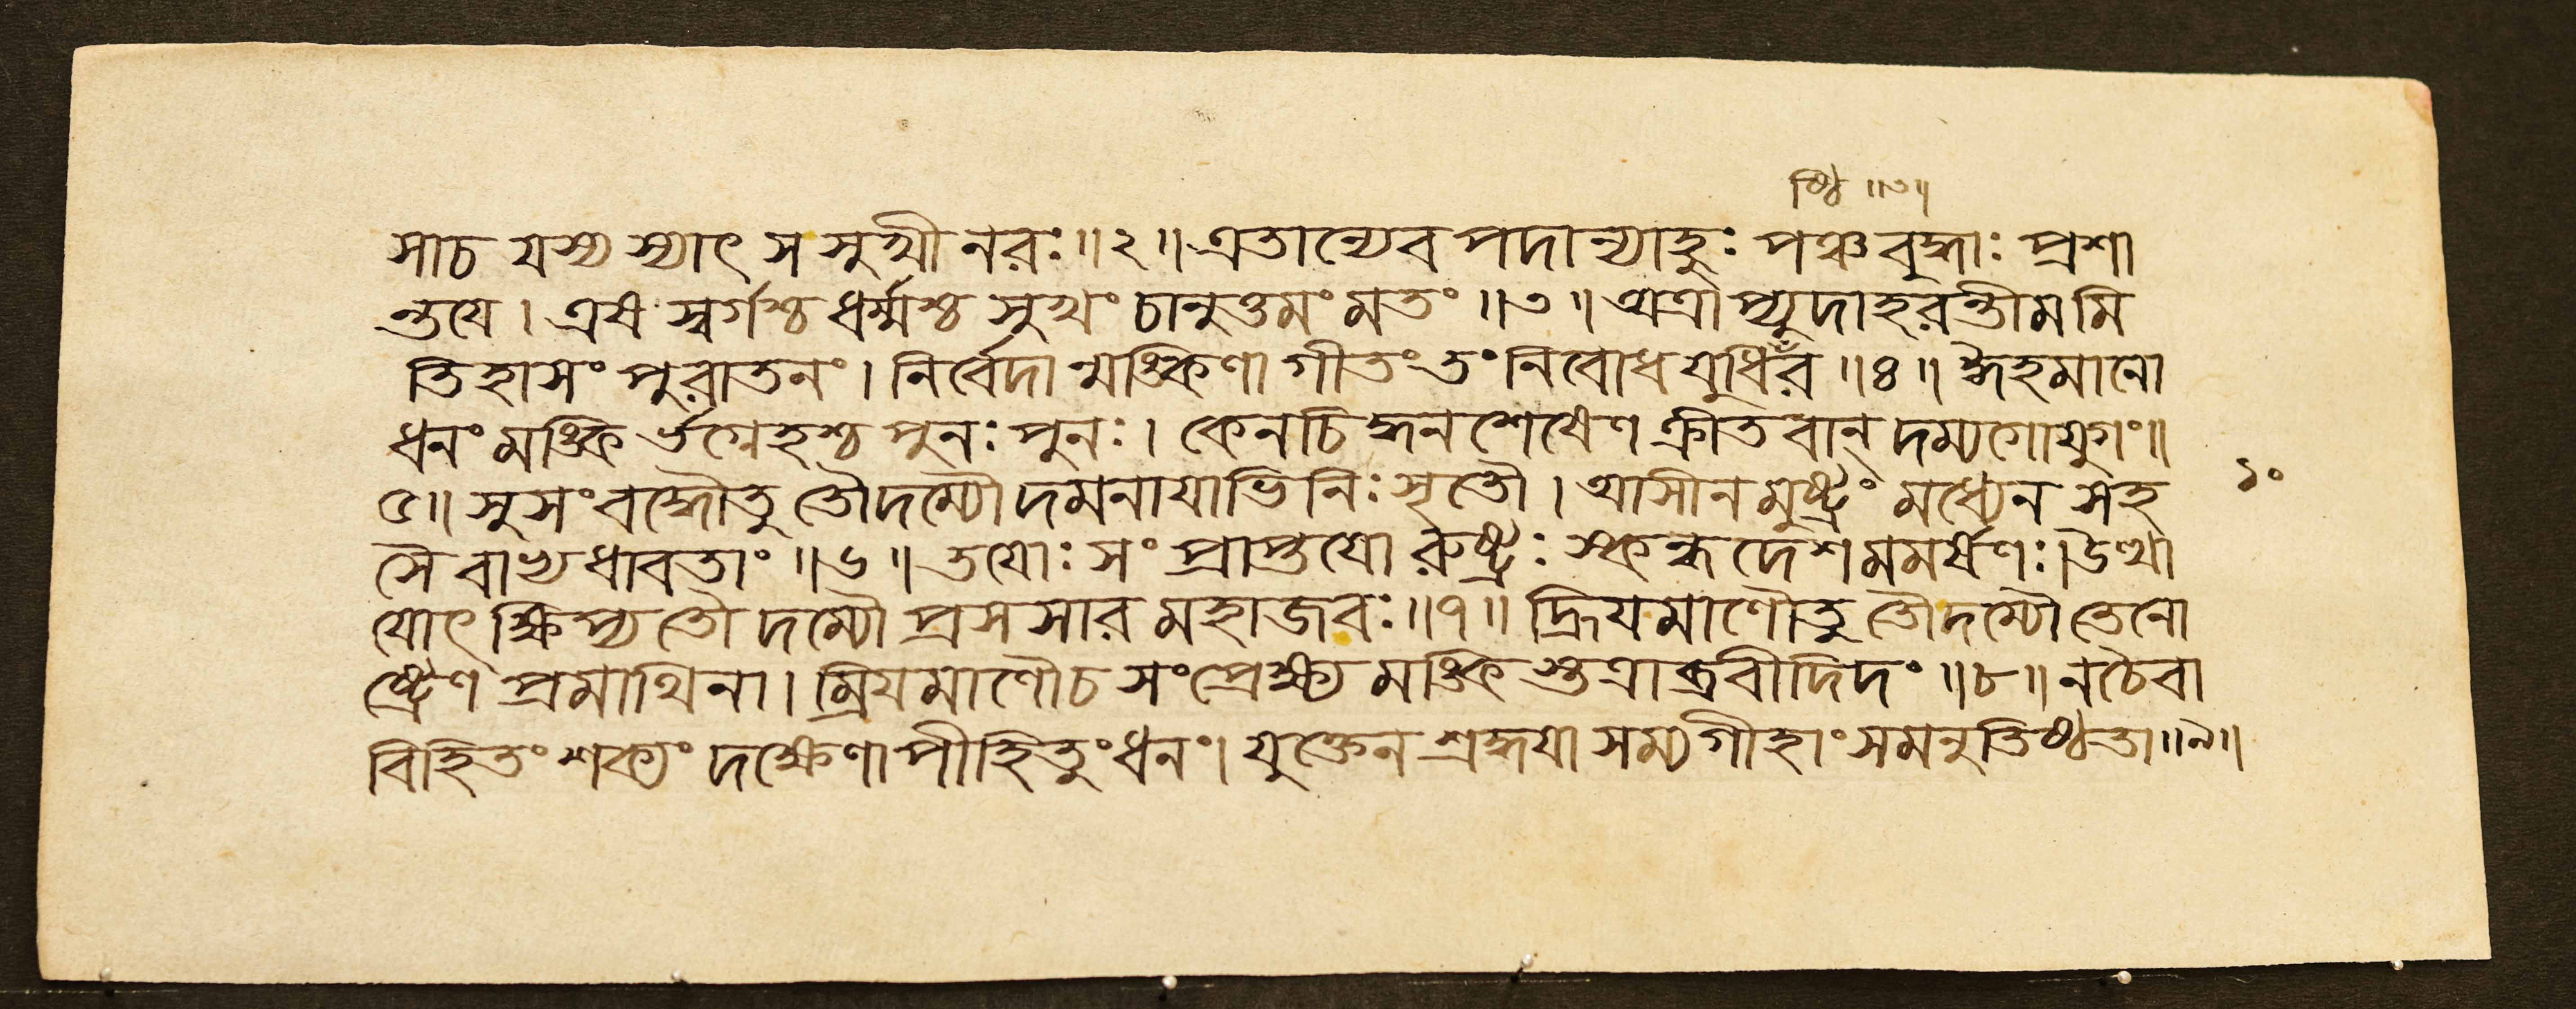 ষ্ঠি ॥৩॥
সাচ যস্য স্যাৎ স সুখী নরঃ॥২॥ এতান্যেব পদান্যাহুঃ পঞ্চবৃদ্ধাঃ প্রশা
ন্তযে। এষ স্বর্গশ্চ ধর্ম্মশ্চ সুখং চানুত্তমং মতং ॥৩॥ অত্রাপ্যুদাহরন্তীমমি
তিহাসং পুরাতনং। নির্বেদান্মঙ্কিণা গীতং তং নিবোধ যুধিঁর ॥৪॥ ঈহমানো
ধনং মঙ্কি র্ভগ্নেহশ্চ পুনঃ পুনঃ। কেনচিদ্ধনশেষেণ ক্রীতবান্ দম্যগোযুগং॥
৫॥ সুসংবদ্ধৌতু তৌদম্যৌ দমনাযাভিনিঃসৃতৌ। আসীনমুষ্ট্রং মধ্যেন সহ
সৈ বাভ্যধাবতাং ॥৬॥ তযোঃ সংপ্রাপ্তযো রুষ্ট্রঃ স্কন্ধদেশমমর্ষণঃ। উত্থা
যোৎক্ষিপ্য তৌ দম্যৌ প্রসসার মহাজবঃ ॥৭॥ হ্রিযমাণৌতু তৌদম্যৌ তেনো
ষ্ট্রেণ প্রমাথিনা। ম্রিযমাণৌচ সংপ্রেক্ষ্য মঙ্কি স্তত্রাব্রবীদিদং ॥৮॥ নচৈবা
বিহিতং শক্যং দক্ষেণাপীহিতুং ধনং। যুক্তেন শ্রদ্ধযা সম্যগীহাং সমনুতিষ্ঠতা॥৯॥
১০